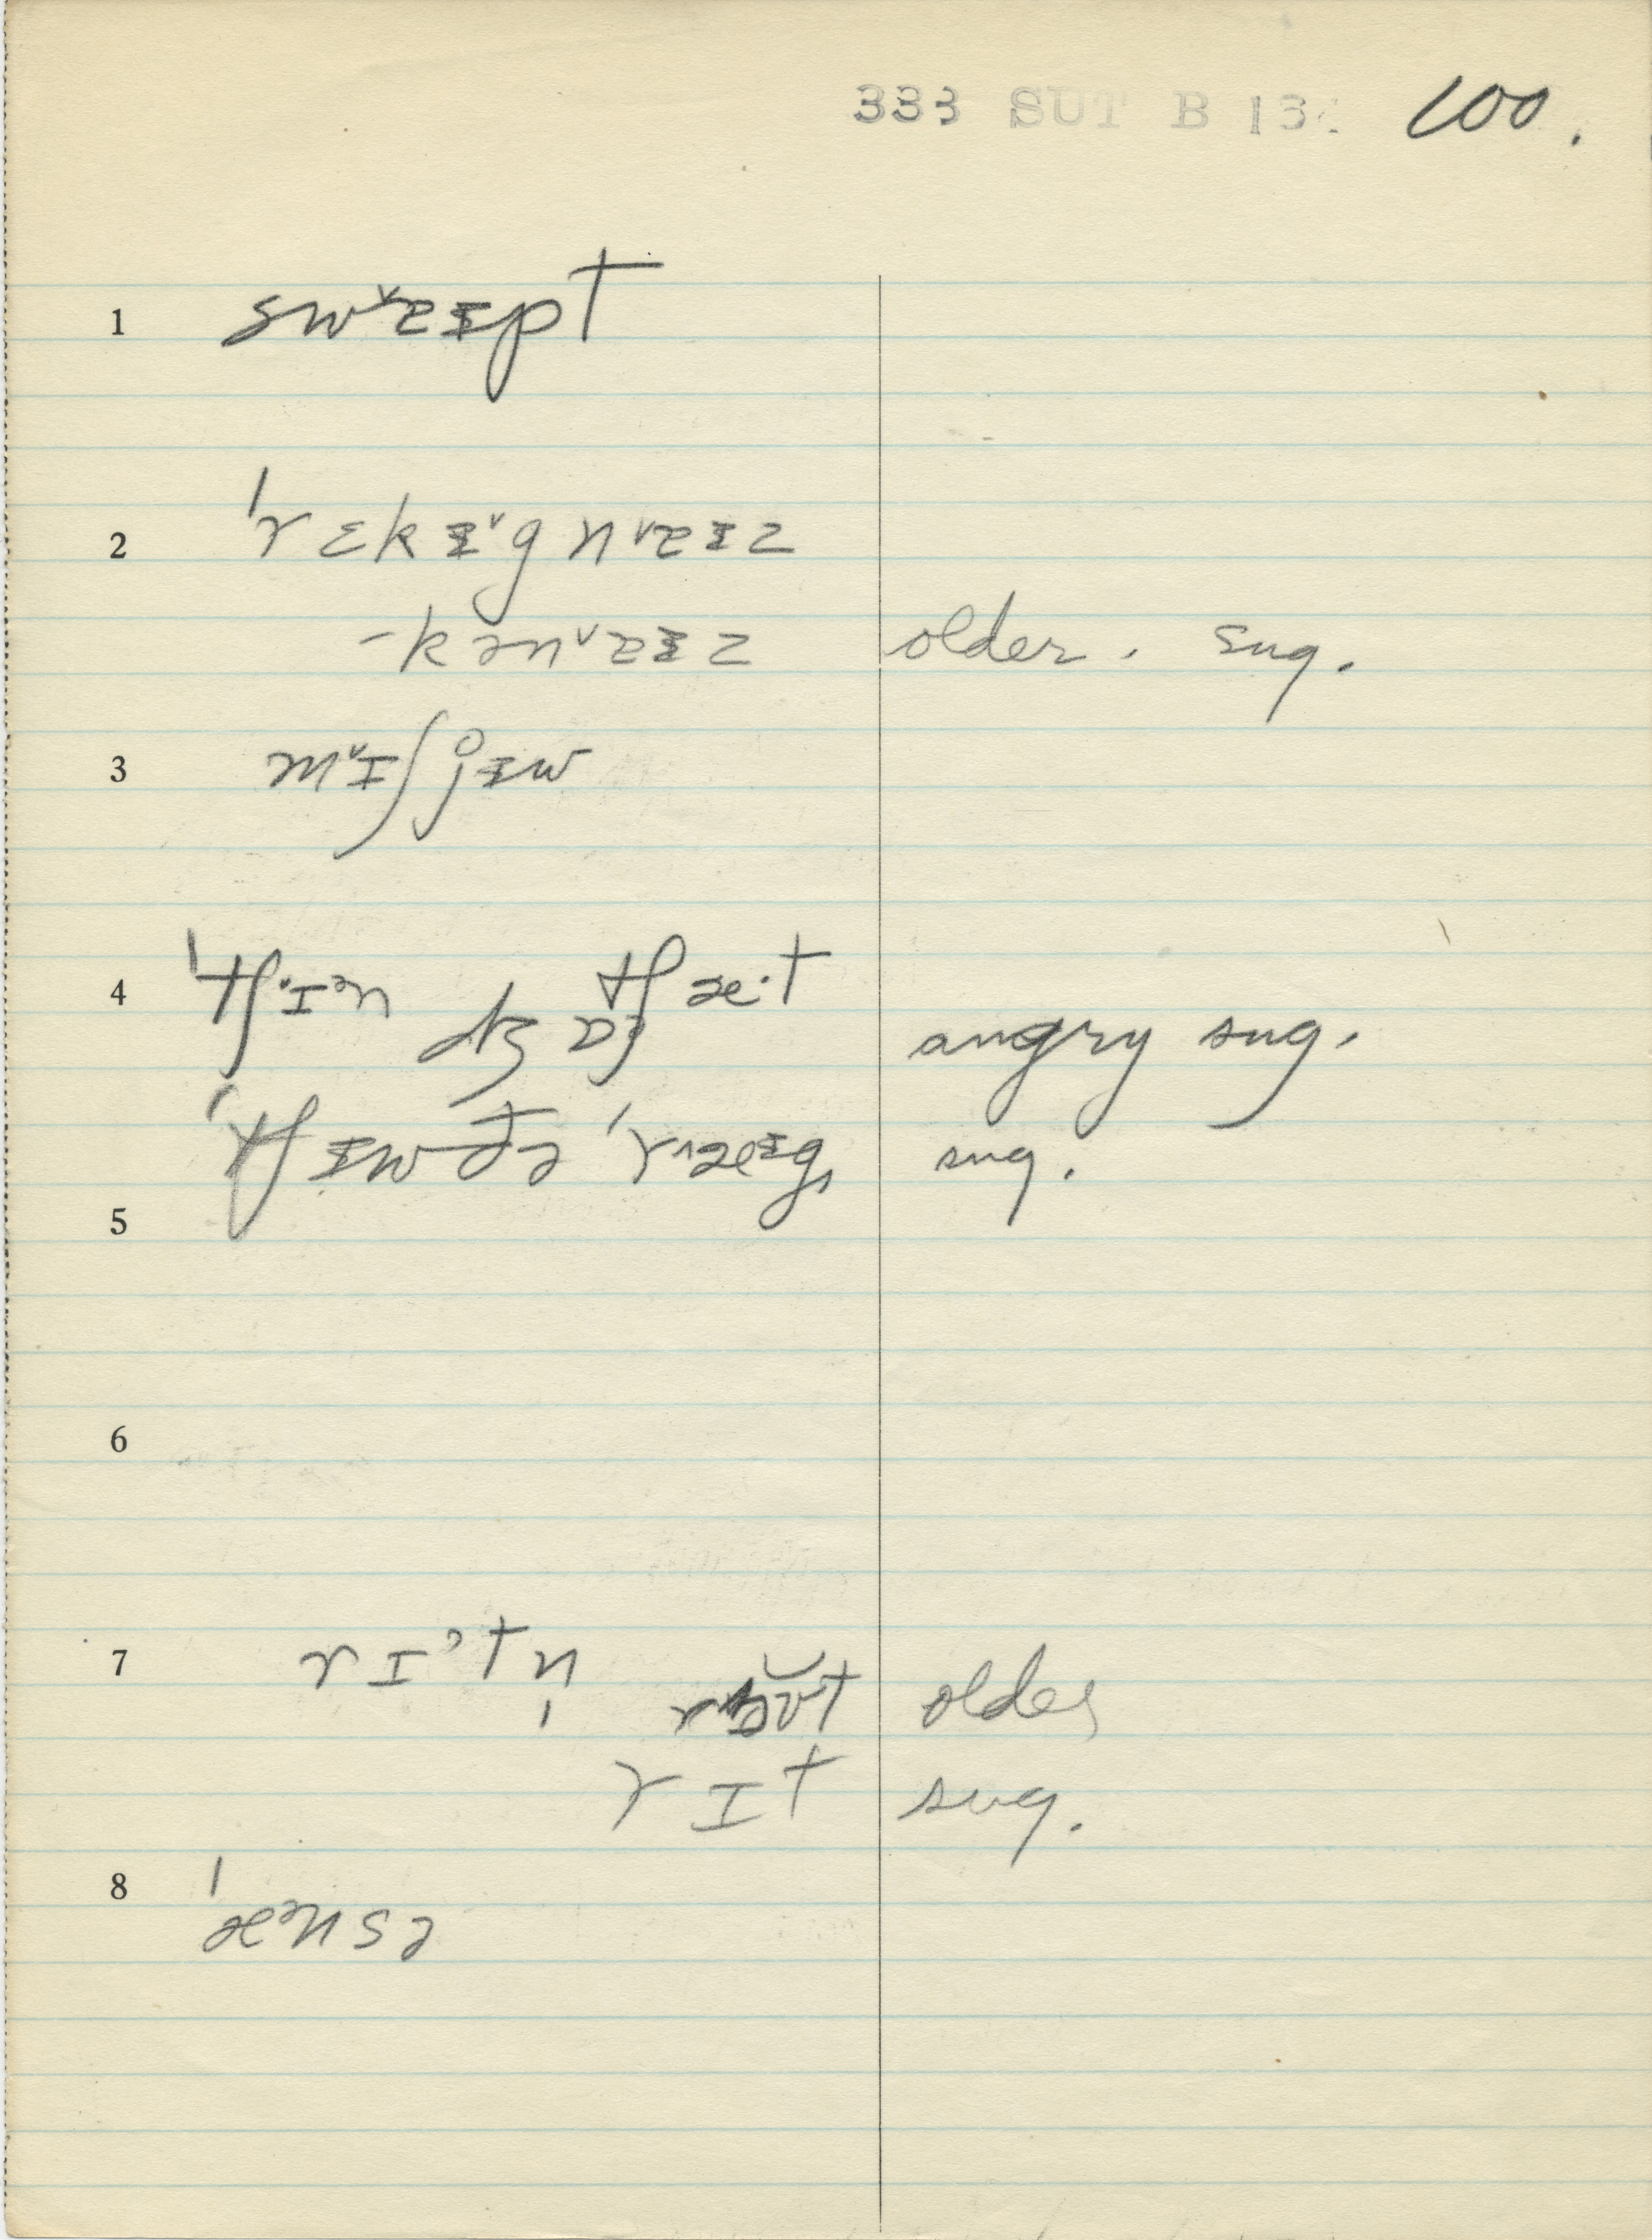 333 SUT B 13 100.
1 swᵛɛᵻpt
2 ˈrɛkᵻᵛgnᵛɛᵻz
-kənᵛɛᵻz older. sug.
3 mᵛɪʃjᵻw
4 ˈtʃɪᵊn tʃæ·t
angry sug.
ˈtʃᵻw ˈr^æᵻg, sug.
5
6
7 rɪˀtn̩ older
rɪt sug.
8 ˈæᵊnsə